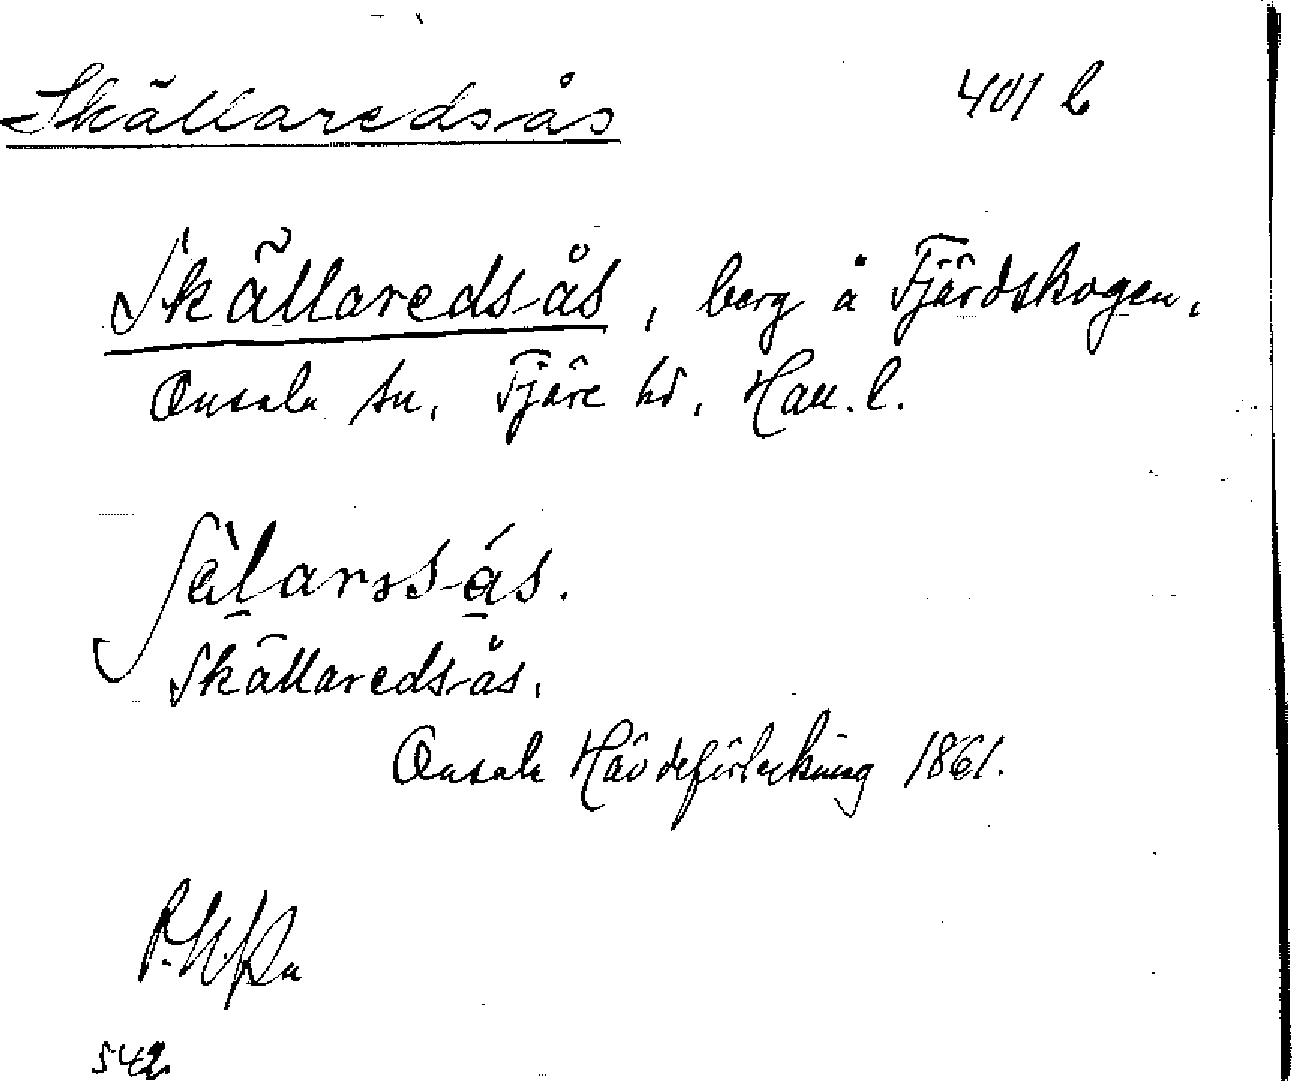 Skällaredsås 401 b
Skällaredsås, berg å Fjärdskogen,
Onsala sn. Fjäre hd, Hall. l.
ʃàlarssás.
Skällaredsås.
Onsala Hävdeförteckning 1861.
542